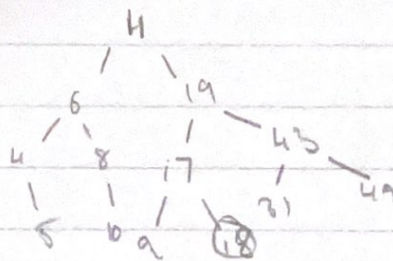 11
6 19
4 8 17 43
5 10 9 18 31 49